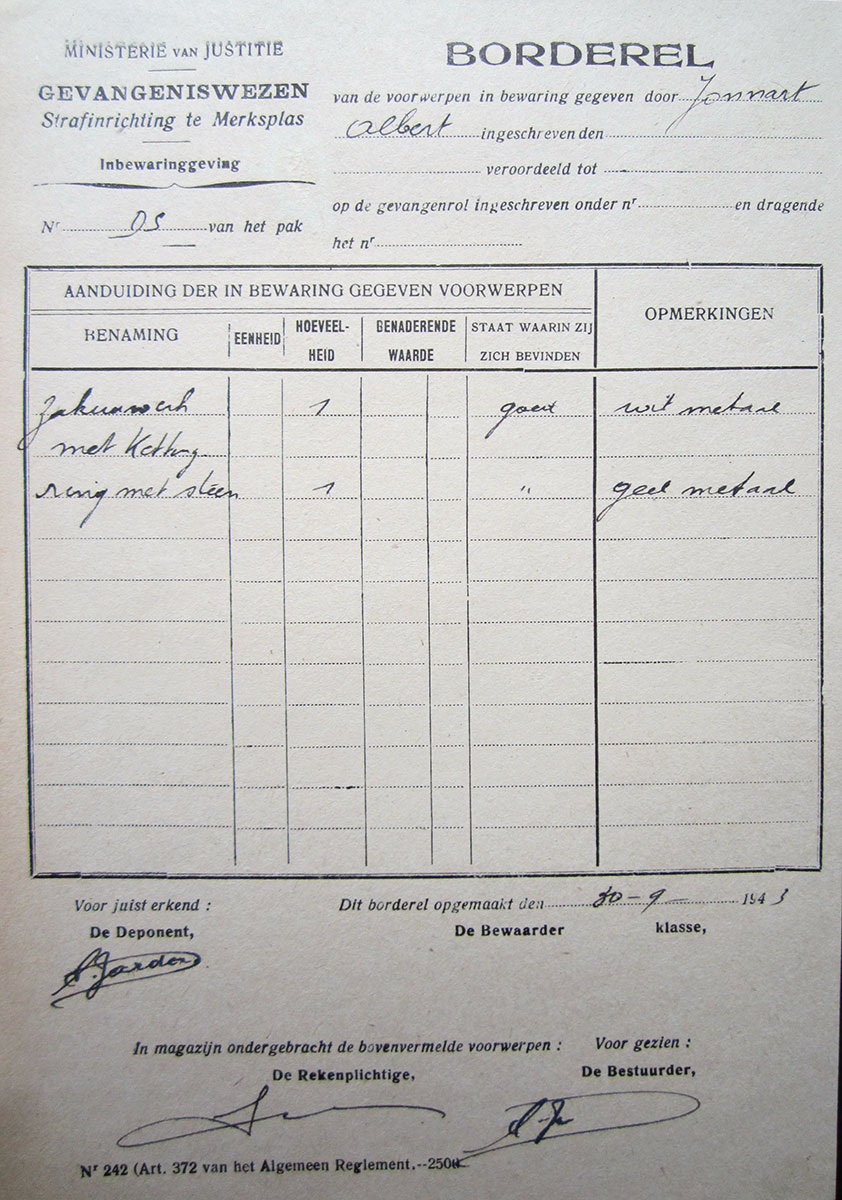 MINISTERIE VAN JUSTITIE
GEVANGENISWEZEN
Strafinrichting te Merksplas
Inbewaringgeving
Nr DS van het pak
BORDEREL
van de voorwerpen in bewaring gegeven door Jonnart
Albert ingeschreven den
veroordeeld tot
op de gevangenrol ingeschreven onder nr en dragende
het nr
AANDUIDING DER IN BEWARING GEGEVEN VOORWERPEN
OPMERKINGEN
BENAMING EENHEID HOEVEEL-HEID BENADERENDE WAARDE STAAT WAARIN ZIJ ZICH BEVINDEN
zakuurwerk 1 goed wit metaal
met Ketting
ring met steen 1 " geel metaal
Voor juist erkend :
De Deponent,
Dit borderel opgemaakt den 30-9- 1943
De Bewaarder klasse,
In magazijn ondergebracht de bovenvermelde voorwerpen :
De Rekenplichtige,
Voor gezien :
De Bestuurder,
Nr 242 (Art. 372 van het Algemeen Reglement.--2500